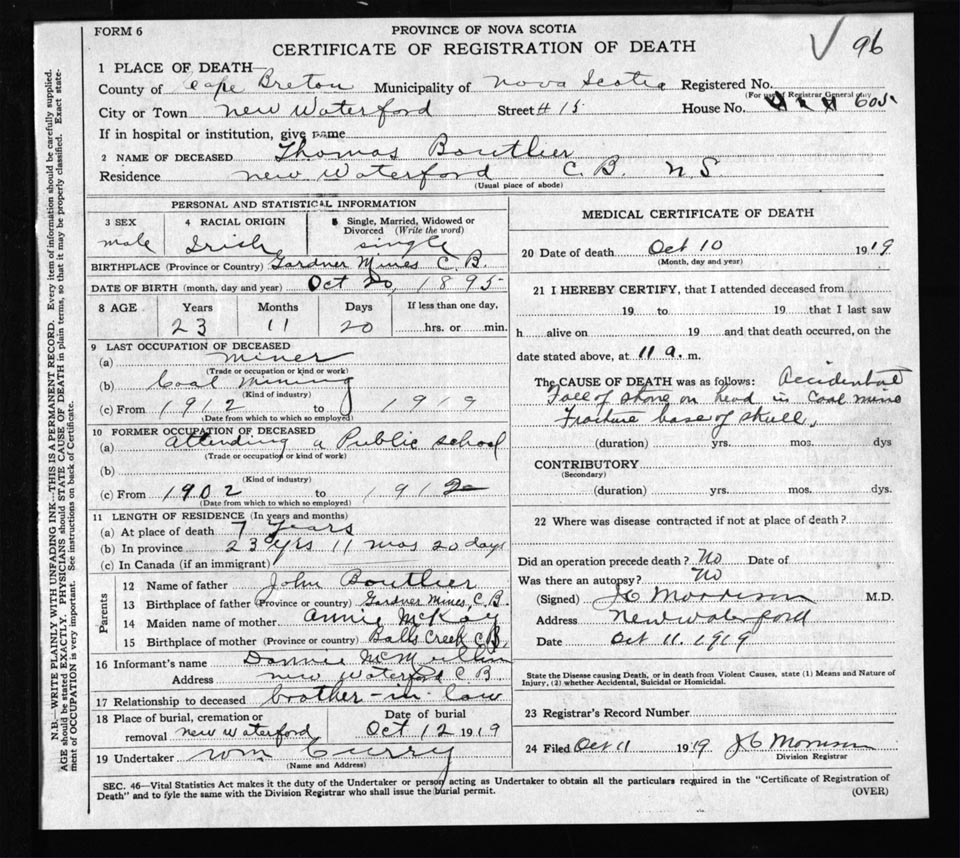 FORM 6
PROVINCE OF NOVA SCOTIA
CERTIFICATE OF REGISTRATION OF DEATH
96
1 PLACE OF DEATH
County of Cape Breton Municipality of Nova Scotia Registered No.
(For use of Registrar General only
City or Town New Waterford Street # 15 House No. 605
If in hospital or institution, give name
2 NAME OF DECEASED Thomas Boutlier
Residence New Waterford C. B. N. S.
(Usual place of abode)
PERSONAL AND STATISTICAL INFORMATION
3 SEX male
4 RACIAL ORIGIN Irish
5 Single, Married, Widowed or Divorced (Write the word) single
BIRTHPLACE (Province or Country) Gardner Mines C. B.
DATE OF BIRTH (month, day and year) Oct 20, 1895
8 AGE Years Months Days If less than one day,
23 11 20 hrs. or min.
9 LAST OCCUPATION OF DECEASED
(a) miner
(Trade or occupation or kind of work)
(b) Coal mining
(Kind of industry)
(c) From 1912 to 1919
(Date from which to which so employed)
10 FORMER OCCUPATION OF DECEASED
(a) attending a Public school
(Trade or occupation or kind of work)
(b)
(Kind of industry)
(c) From 1902 to 1912
(Date from which to which so employed)
11 LENGTH OF RESIDENCE (In years and months)
(a) At place of death 7 Years
(b) In province 23 yrs 11 mos 20 days
(c) In Canada (if an immigrant)
Parents
12 Name of father John Boutlier
13 Birthplace of father (Province or country) Gardner Mines, C. B.
14 Maiden name of mother Annie McKay
15 Birthplace of mother (Province or country) Balls Creek C B,
16 Informant's name Dannie McMullin
Address New Waterford C B
17 Relationship to deceased brother-in-law
18 Place of burial, cremation or removal New Waterford
Date of burial Oct 12 1919
19 Undertaker Wm Curry
(Name and Address)
MEDICAL CERTIFICATE OF DEATH
20 Date of death Oct 10 1919
(Month, day and year)
21 I HEREBY CERTIFY, that I attended deceased from
19 to 19 that I last saw
h alive on 19 and that death occurred, on the
date stated above, at 11 a. m.
The CAUSE OF DEATH was as follows: Accidental
Fall of stone on head in Coal mine
Fracture base of skull,
(duration) yrs. mos. dys
CONTRIBUTORY
(Secondary)
(duration) yrs. mos. dys.
22 Where was disease contracted if not at place of death?
Did an operation precede death? No Date of
Was there an autopsy? No
(Signed) J C Morrison M.D.
Address New Waterford
Date Oct 11. 1919
State the Disease causing Death, or in death from Violent Causes, state (1) Means and Nature of
Injury, (2) whether Accidental, Suicidal or Homicidal.
23 Registrar's Record Number
24 Filed Oct 11 1919 J C Morrison
Division Registrar
SEC. 46—Vital Statistics Act makes it the duty of the Undertaker or person acting as Undertaker to obtain all the particulars required in the "Certificate of Registration of
Death" and to fyle the same with the Division Registrar who shall issue the burial permit.
(OVER)
N.B.—WRITE PLAINLY WITH UNFADING INK—THIS IS A PERMANENT RECORD. Every item of information should be carefully supplied.
AGE should be stated EXACTLY. PHYSICIANS should STATE CAUSE OF DEATH in plain terms, so that it may be properly classified. Exact state-
ment of OCCUPATION is very important. See instructions on back of Certificate.